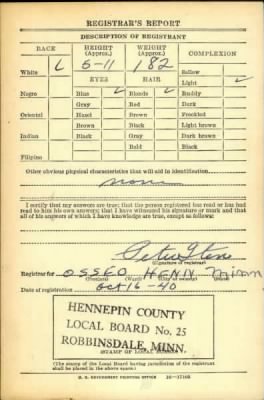 REGISTRAR'S REPORT
DESCRIPTION OF REGISTRANT
RACE HEIGHT (Approx.) WEIGHT (Approx.) COMPLEXION
5-11 182
White ✓ Sallow
EYES HAIR Light ✓
Negro Blue ✓ Blonde ✓ Ruddy
Gray Red Dark
Oriental Hazel Brown Freckled
Brown Black Light brown
Indian Black Gray Dark brown
Bald Black
Filipino
Other obvious physical characteristics that will aid in identification
none
I certify that my answers are true; that the person registered has read or has
had read to him his own answers; that I have witnessed his signature or mark and that
all of his answers of which I have knowledge are true, except as follows:
(Signature of registrar)
Registrar for OSSEO HENN Minn
Date of registration Oct 16-40
HENNEPIN COUNTY
LOCAL BOARD No. 25
ROBBINSDALE, MINN.
(STAMP OF LOCAL BOARD)
(The stamp of the Local Board having jurisdiction of the registrant
shall be placed in the above space.)
U. S. GOVERNMENT PRINTING OFFICE 16-17105